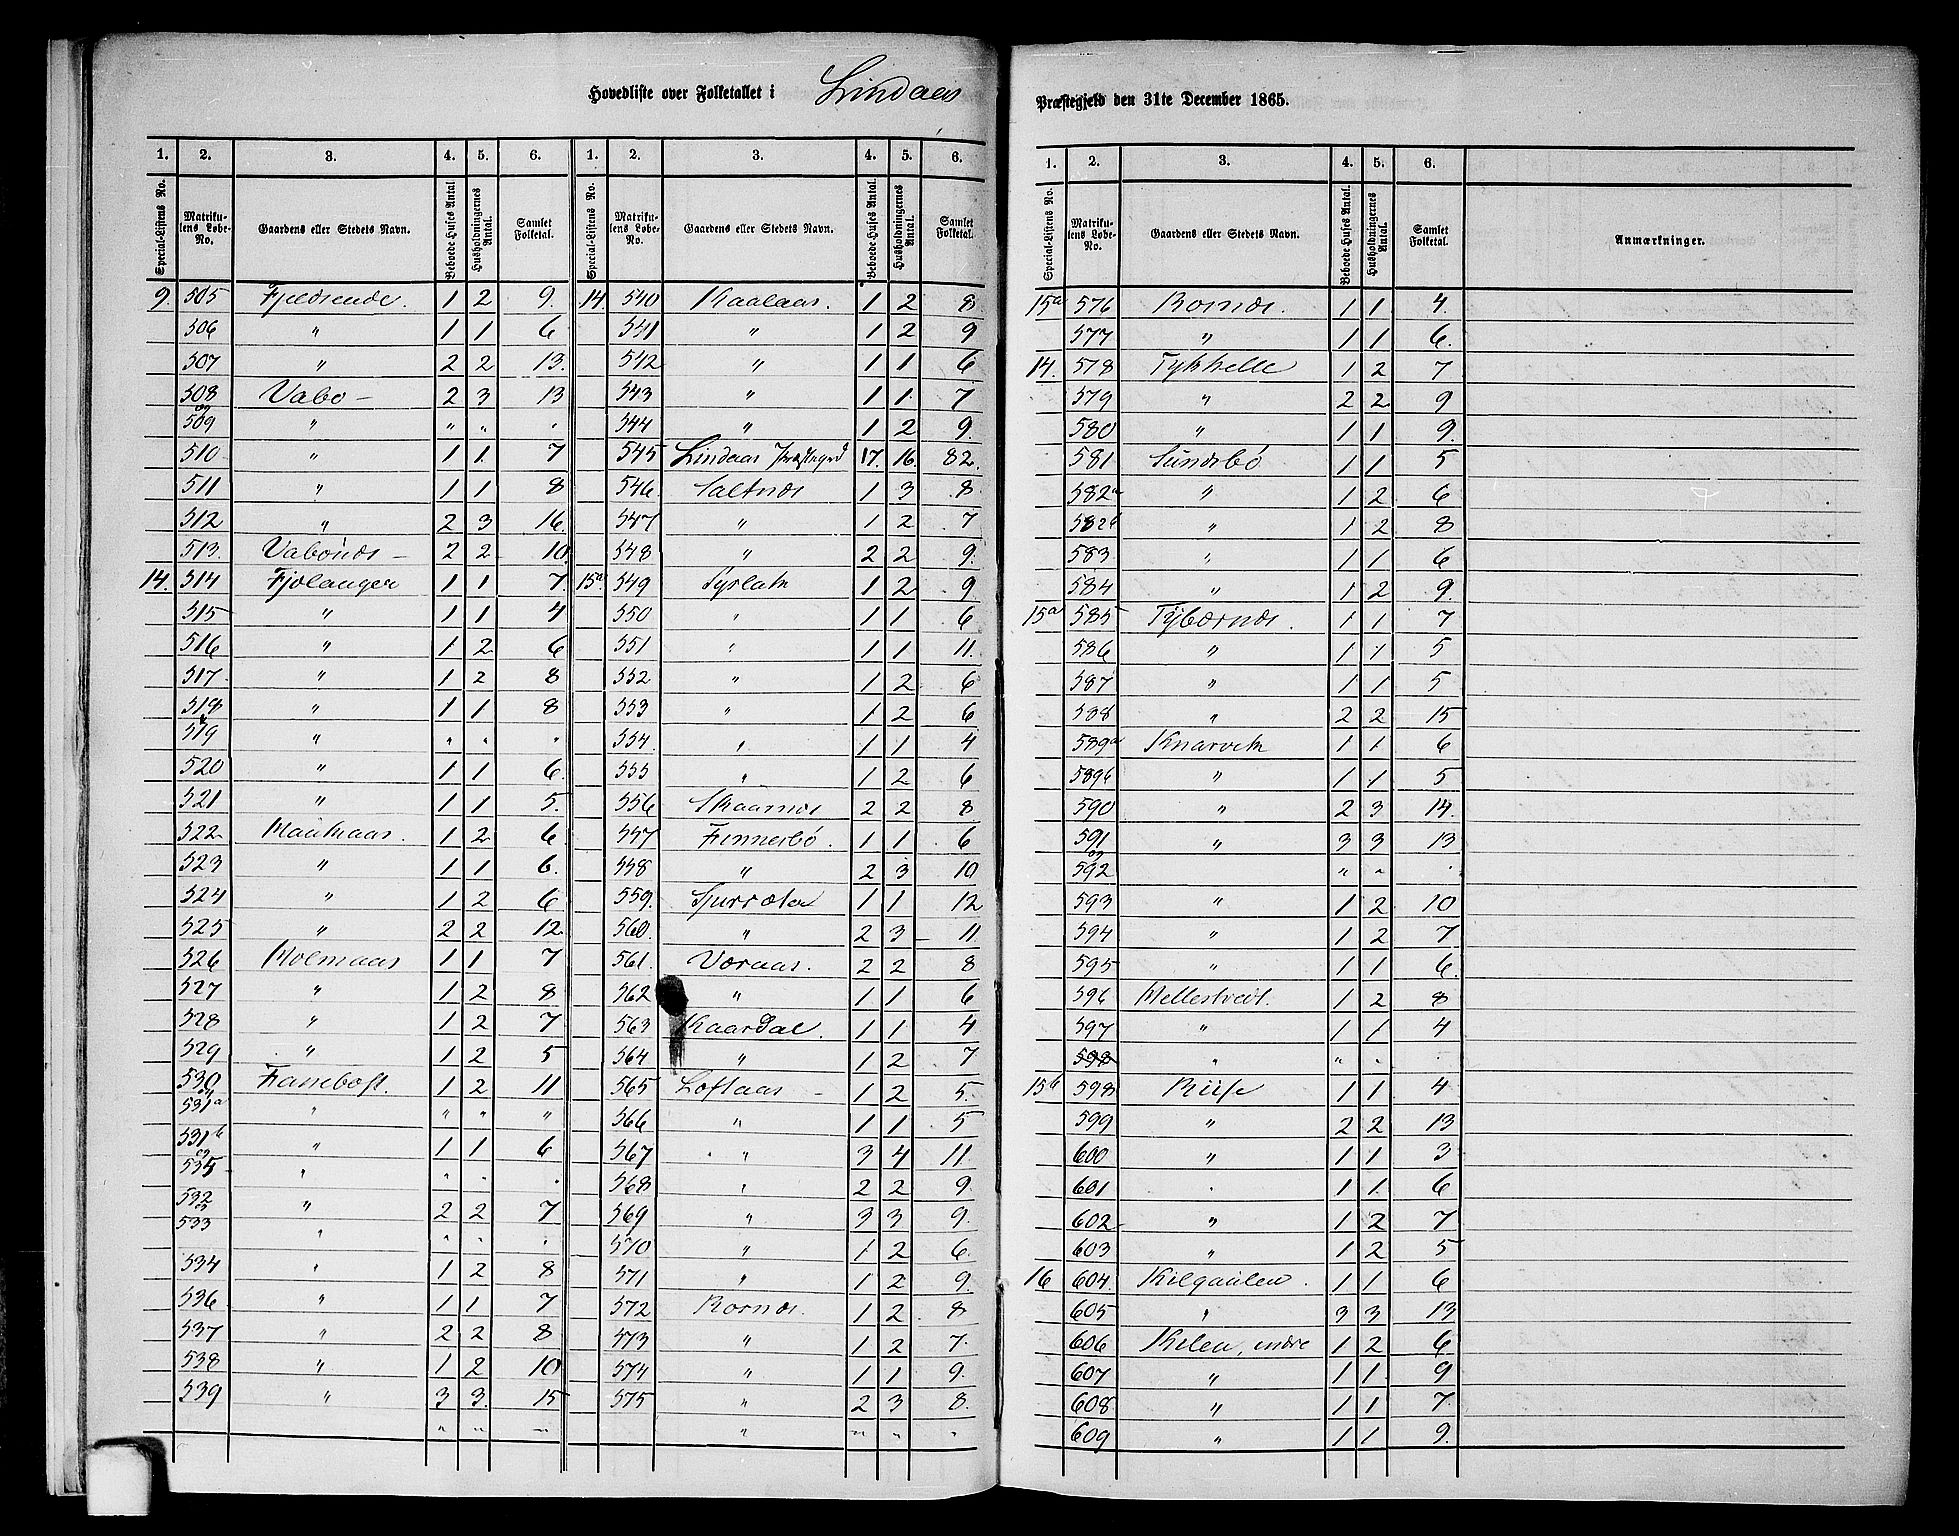 Hovedliste over Folketallet i Lindaas
1. 2. 3. 4. 5. 6. 1. 2. 3. 4. 5. 6.
Special-Listens No. Matrikulens Løbe-No. Gaardens eller Stedets Navn. Beboede Huses Antal. Husholdningernes Antal. Samlet Folketal. Special-Listens No. Matrikulens Løbe-No. Gaardens eller Stedets Navn. Beboede Huses Antal. Husholdningernes Antal. Samlet Folketal.
9. 505 Fjeldsende. 1 2 9.
506 " 1 1 6
507 " 2 2 13.
508 Vabø - 2 3 13
og 509 " " " "
510 " 1 1 7
511 " 1 1 8
512 " 2 3 16.
513. Vabønæs - 2 2 10
14. 514 Fjolanger 1 1 7.
515 " 1 1 4
516 " 1 2 6
517 " 1 2 8
518 " 1 1 8
& 519 " " " "
520 " 1 1 6.
521 " 1 1 5.
522 Haukaas. 1 2 6.
523 " 1 1 6.
524 " 1 2 6
525 " 2 2 12.
526 Kolmaas 1 1 7
527 " 1 2 8
528 " 1 2 7
529 " 1 2 5
530 Fanebost. 1 2 11
531a " " " "
531b " 1 1 6
og 535 " " " "
532 " 2 2 7
533 " " " "
534 " 1 2 8
536 " 1 1 7
537 " 2 2 8
538 " 1 2 10
539 " 3 3. 15
" " "
14. 540 Kaalaas. 1 2 8
541 " 1 2 9
542 " 1 1 6
543 " 1 1. 7
544 " 1 2 9.
545 Lindaas Præstegrd 17. 16. 82.
546. Saltnæs 1 3 8.
547 " 1 2 7
548 " 2 2 9.
15a 549 Syslak 1 2 9
550 " 1 1 6
551 " 1 1 11.
552 " 1 2 6
553 " 1 2 6
554. " 1 1 4
555 " 1 2 6
556 Skaarnæs 2 2 8
557 Finnesbø. 1 1 6
558 " 2 3 10
559. Spurræten 1 1 12
560. " 2 3 11
561. Voraas. 2 2 8
562 " 1 1 6
563 Kaardal. 1 1 4
564 " 1 2 7
565 Loftaas - 1 2 5.
566 " 1 1 5
567 " 3 4 11.
568 " 2 2 9.
569 " 3 3 9.
570 " 1 2 6.
571 " 1 2 9.
572 Rornæs. 1 2 8
573 " 1 2 7.
574 " 1 1 9.
575 " 2 3 8.
" " " "
Præstegjeld den 31te December 1865.
1. 2. 3. 4. 5. 6.
Special-Listens No. Matrikulens Løbe-No. Gaardens eller Stedets Navn. Beboede Huses Antal. Husholdningernes Antal. Samlet Folketal. Anmærkninger.
15a 576 Rornæs. 1 1 4.
577 " 1 1 6.
14. 578 Tykhelle 1 2 7
579 " 2 2 9
580 " 1 1 9.
581 Sundsbø 1 1 5
582a " 1 2 6
582b " 1 2 8
583 " 1 1 6
584 " 1 2 9.
15a 585 Tybærnæs. 1 1 7
586 " 1 1 5
587 " 1 1 5
588 " 2 2 15
589a Knarvik 1 1 6
589b " 1 1 5
590 " 2 3 14.
591 " 3 3 13
og 592 " " "
593 " 1 2 10
594 " 1 2 7
595 " 1 1 6.
596 Hellestvedt. 1 2 8
597 " 1 1 4
598 " " " "
15b 598 Riise 1 1 4
599 " 2 2 13
600 " 1 1 3
601 " 1 1. 6
602 " 1 2 7
603 " 1 2 5
16 604. Kilgaulen. 1 1 6
605 " 3 3 13
606 Kilen, indre 1 2 6
607 " 1 1 9
608 " 1 1 7.
609 " 1 1 9.